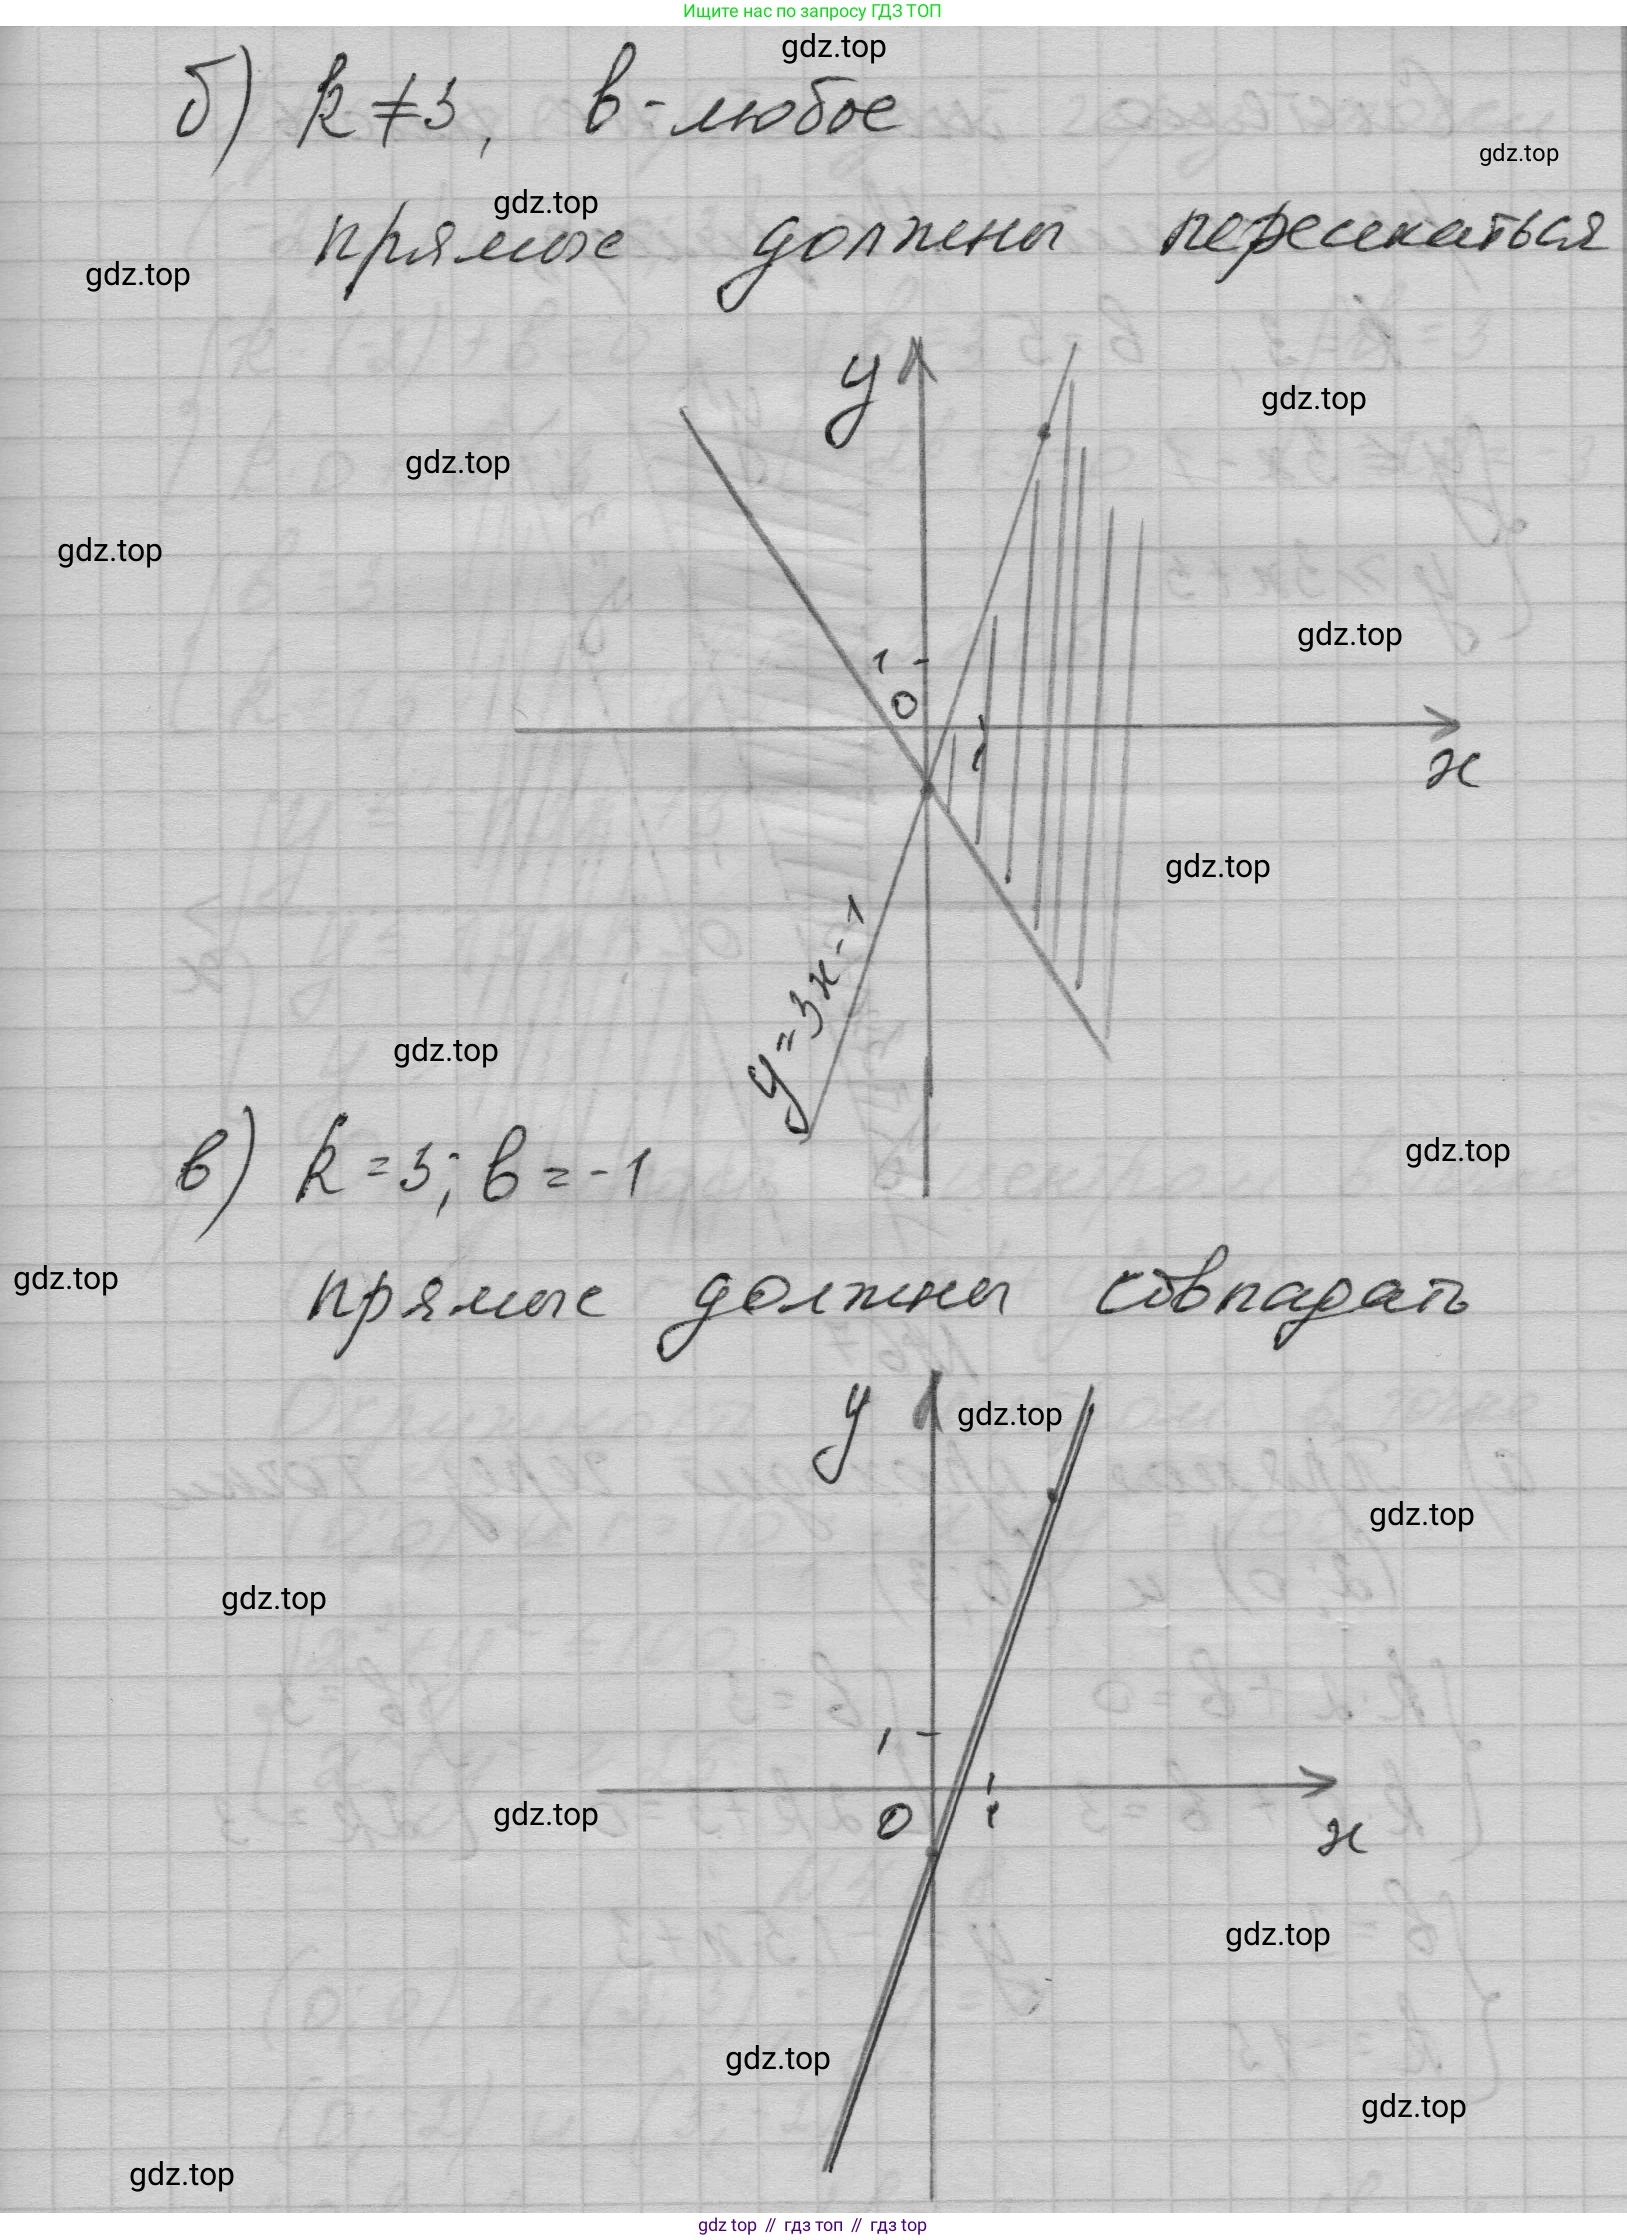 Ищите нас по запросу ГДЗ ТОП
gdz.top
б) k ≠ 3, b - любое
gdz.top
gdz.top
прямые должны пересекаться
gdz.top
y
gdz.top
gdz.top
gdz.top
1
gdz.top
0
1
x
gdz.top
y = 3x - 1
gdz.top
в) k = 3; b = -1
gdz.top
gdz.top
прямые должны совпадать
y
gdz.top
gdz.top
gdz.top
1
0
1
gdz.top
x
gdz.top
gdz.top
gdz.top
gdz.top
gdz top // гдз топ // gdz top